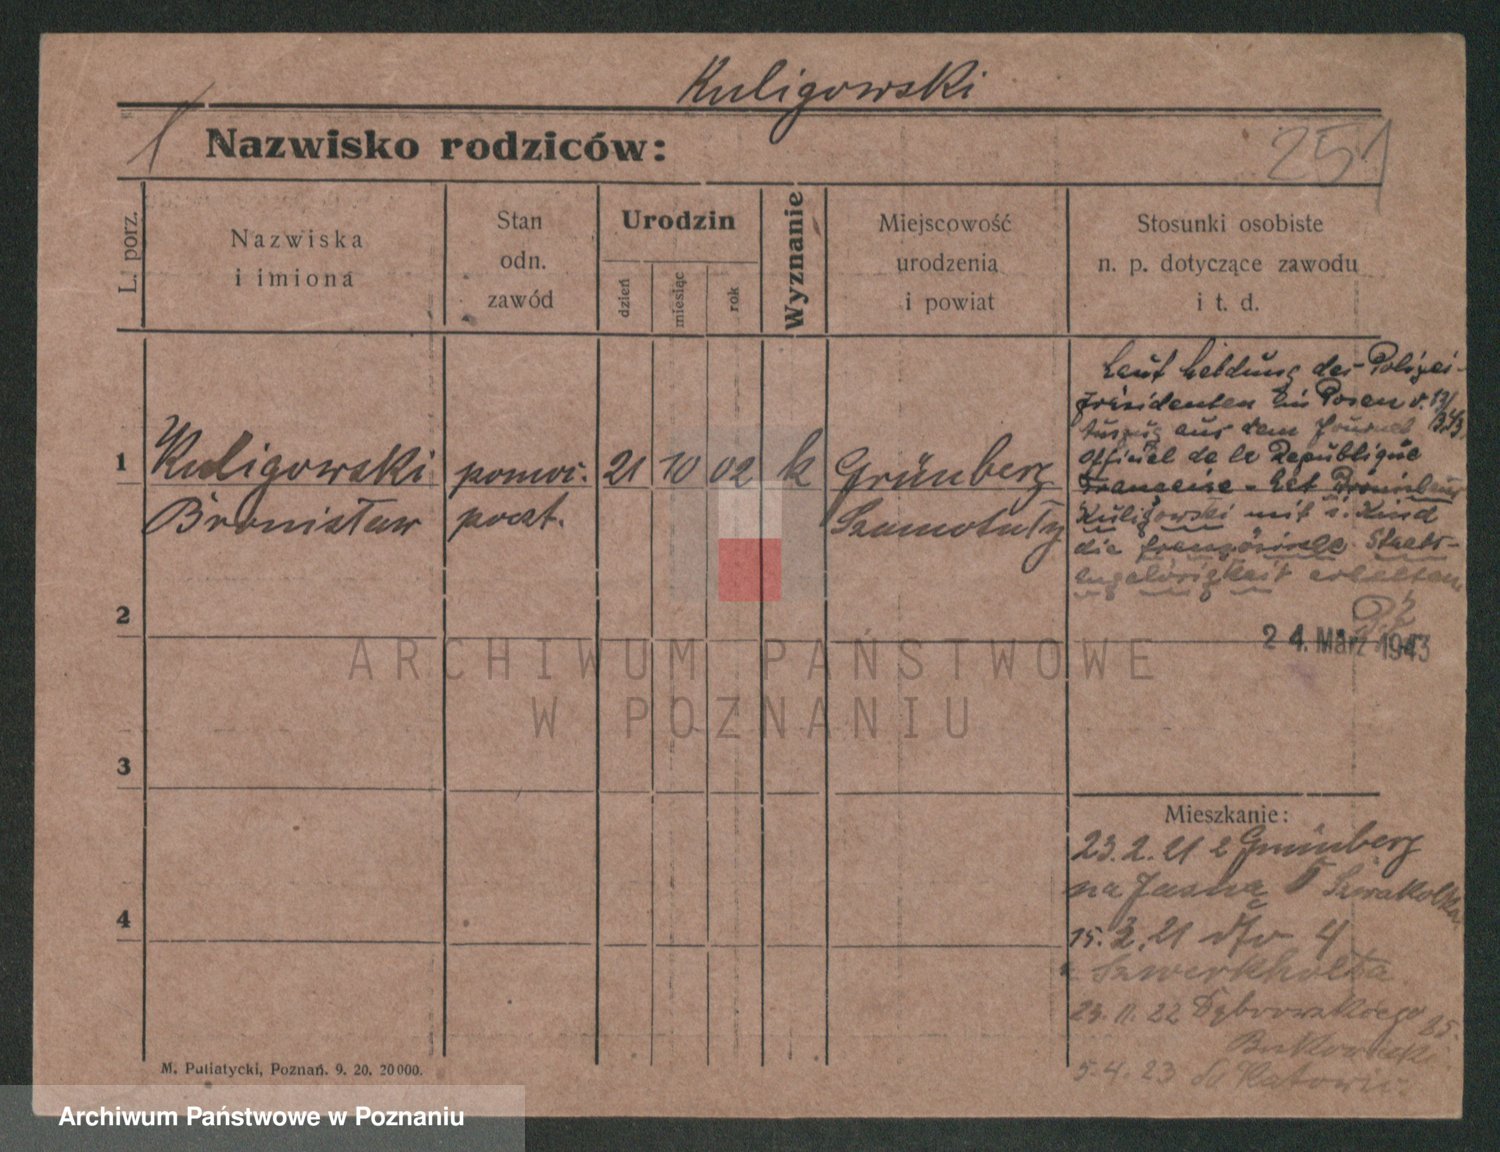 Kuligowski
Nazwisko rodziców:
251
L. porz.
Nazwiska
i imiona
Stan
odn.
zawód
Urodzin
dzień
miesiąc
rok
Wyznanie
Miejscowość
urodzenia
i powiat
Stosunki osobiste
n. p. dotyczące zawodu
i t. d.
1
Kuligowski
Bronisław
pomoc.
poczt.
21 10 02
k
Grünberg
Szamotuły
Laut Meldung des Polizei-
präsidenten in Posen v.
Auszug aus dem Journal
Officiel de la République
Française - hat Bronislaus
Kuligowski mit s. Kind
die französische Staats-
angehörigkeit erhalten
24. März 1943
2
3
4
Mieszkanie:
23.2.21 z Grünberg
na Jasna
15.3.21 dto 4
23.11.22 Dąbrowskiego 25.
Bukowiecki
5.4.23 do Katowic
M. Putiatycki, Poznań. 9. 20. 20000.
ARCHIWUM PAŃSTWOWE
W POZNANIU
Archiwum Państwowe w Poznaniu